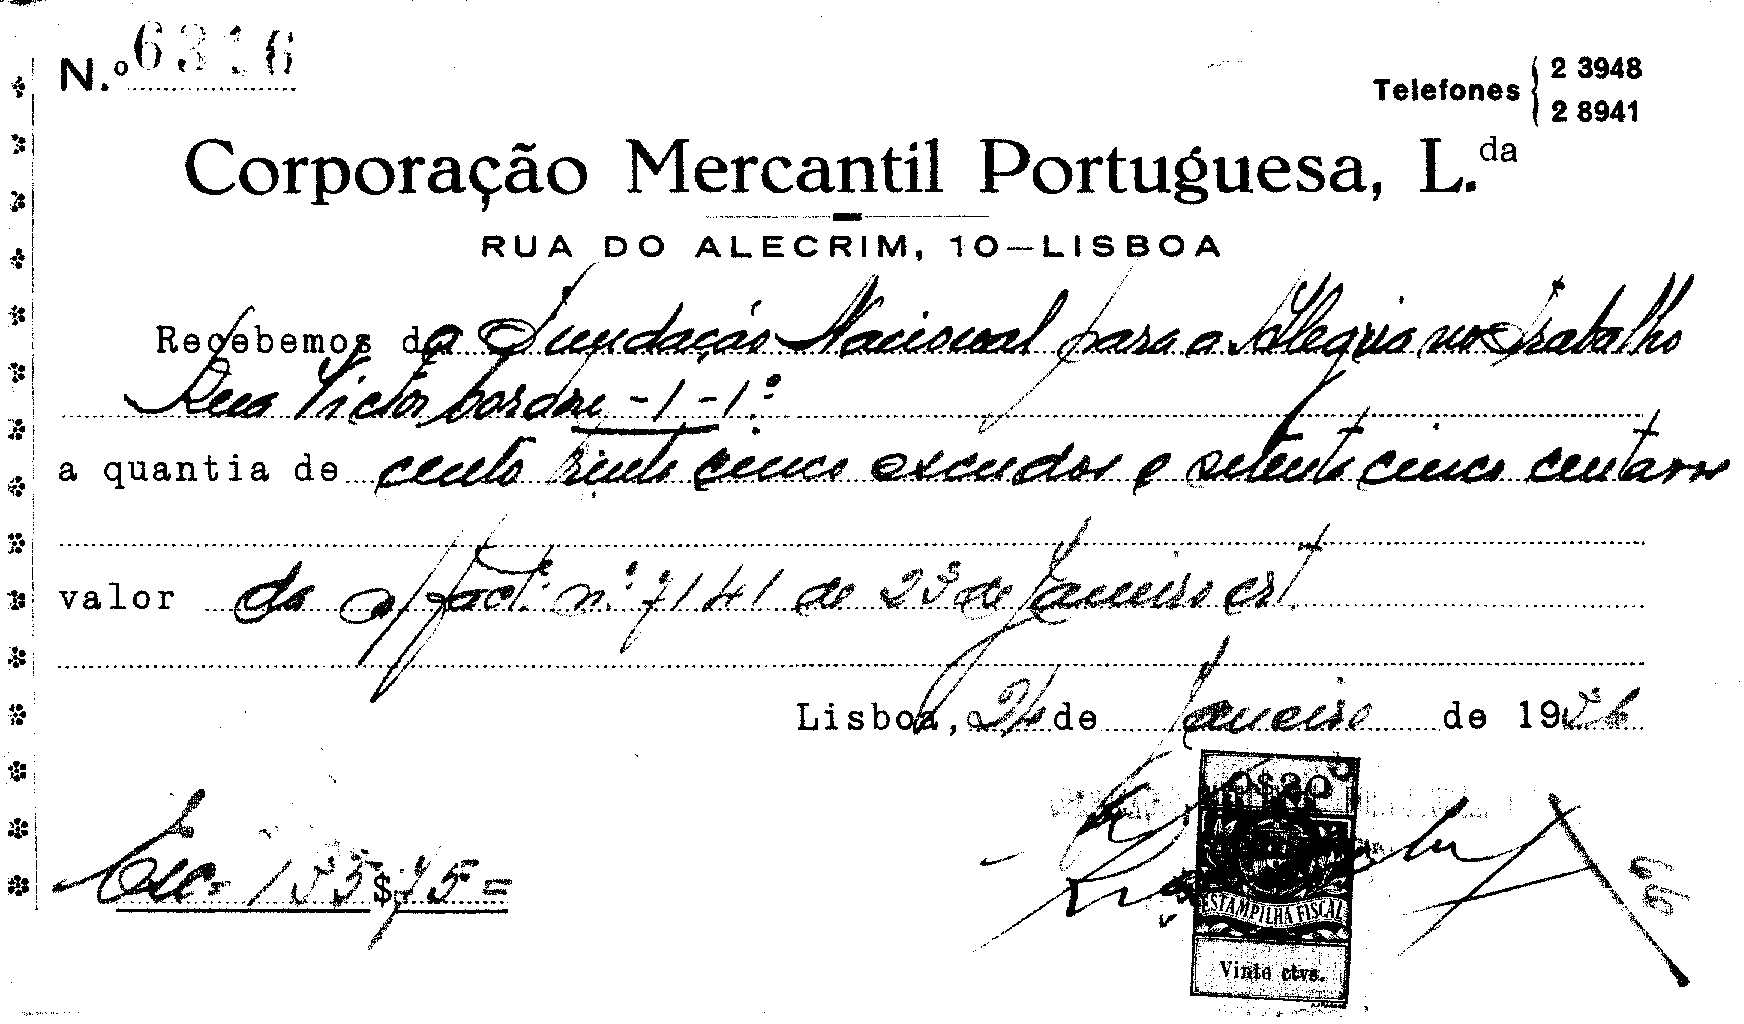 N.º 6316
Telefones { 2 3948
2 8941
Corporação Mercantil Portuguesa, L.da
RUA DO ALECRIM, 10—LISBOA
Recebemos da Fundação Nacional para a Alegria no Trabalho
Rua Victor Cordon - 1 - 1.º
a quantia de cento trinta cinco escudos e setenta cinco centavos
valor da n/ fact.ª n.º 7141 de 23 de Janeiro crt.
Lisboa, 24 de Janeiro de 1936
0$20
Esc= 135$75=
66
ESTAMPILHA FISCAL
Vinte ctvs.